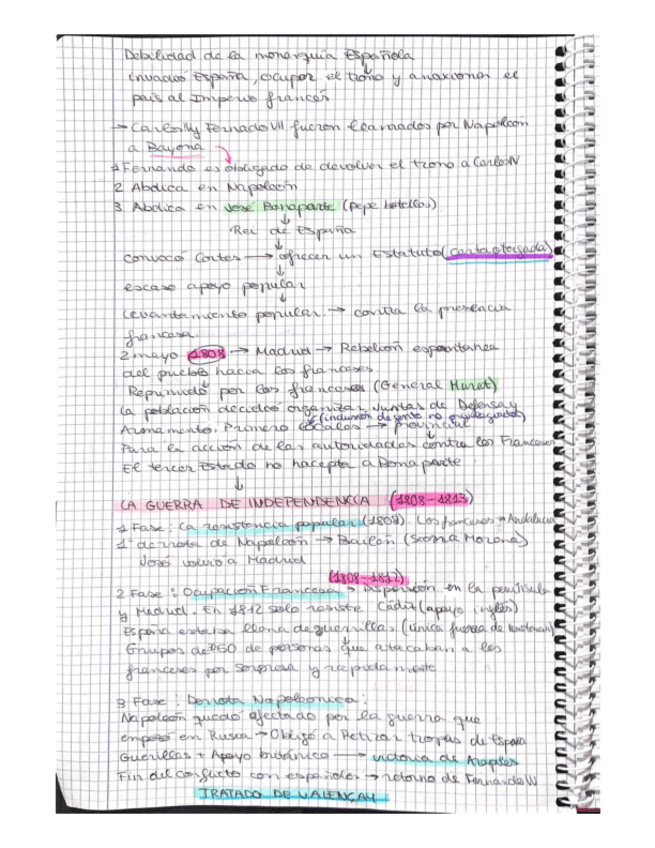 Debilidad de la monarquía Española
↓
invadió España, ocupar el trono y anexionar el
país al Imperio francés
→ Carlos IV y Fernado VII fueron llamados por Napoleón
a Bayona
1 Fernando es obligado de devolver el trono a Carlos IV
2 Abdica en Napoleón
3 Abdica en José Bonaparte (Pepe botellas)
↓
Rei de España
↓
convocó Cortes → ofrecer un Estatuto (carta otorgada)
↓
escaso apoyo popular
↓
Levantamiento popular → contra la presencia
francesa.
2 mayo 1808 → Madrid → Rebelión espontanea
del pueblo hacia los franceses
Reprimido por los franceses (General Murat)
La población decidió organizar Juntas de Defensa y
(inclusión de gente no privilegiada)
Armamento. Primero locales → provincial
Para la acción de las autoridades contra los Franceses
El tercer Estado no hacepta a Bonaparte
↓
LA GUERRA DE INDEPENDENCIA (1808-1813)
1 Fase: La resistencia popular (1808). Los franceses → Andalucia
1ª derrota de Napoleón → Bailén (Sierra Morena)
José volvió a Madrid
(1808-1812)
2 Fase: Ocupación Francesa → en la península
y Madrid. En 1812 solo resiste Cádiz (apoyo inglés)
España estaba llena de guerrillas (única fuerza de
Grupos de 50 de personas que atacaban a los
franceses por sorpresa y rapidamente
3 Fase: Derrota Napoleonica:
Napoleón quedó afectado por la guerra que
empezó en Rusia → Obligó a Retirar tropas de España
Guerillas + Apoyo británico → victoria de Arapiles
Fin del conflicto con españoles → retorno de Fernando VII
TRATADO DE VALENÇAY